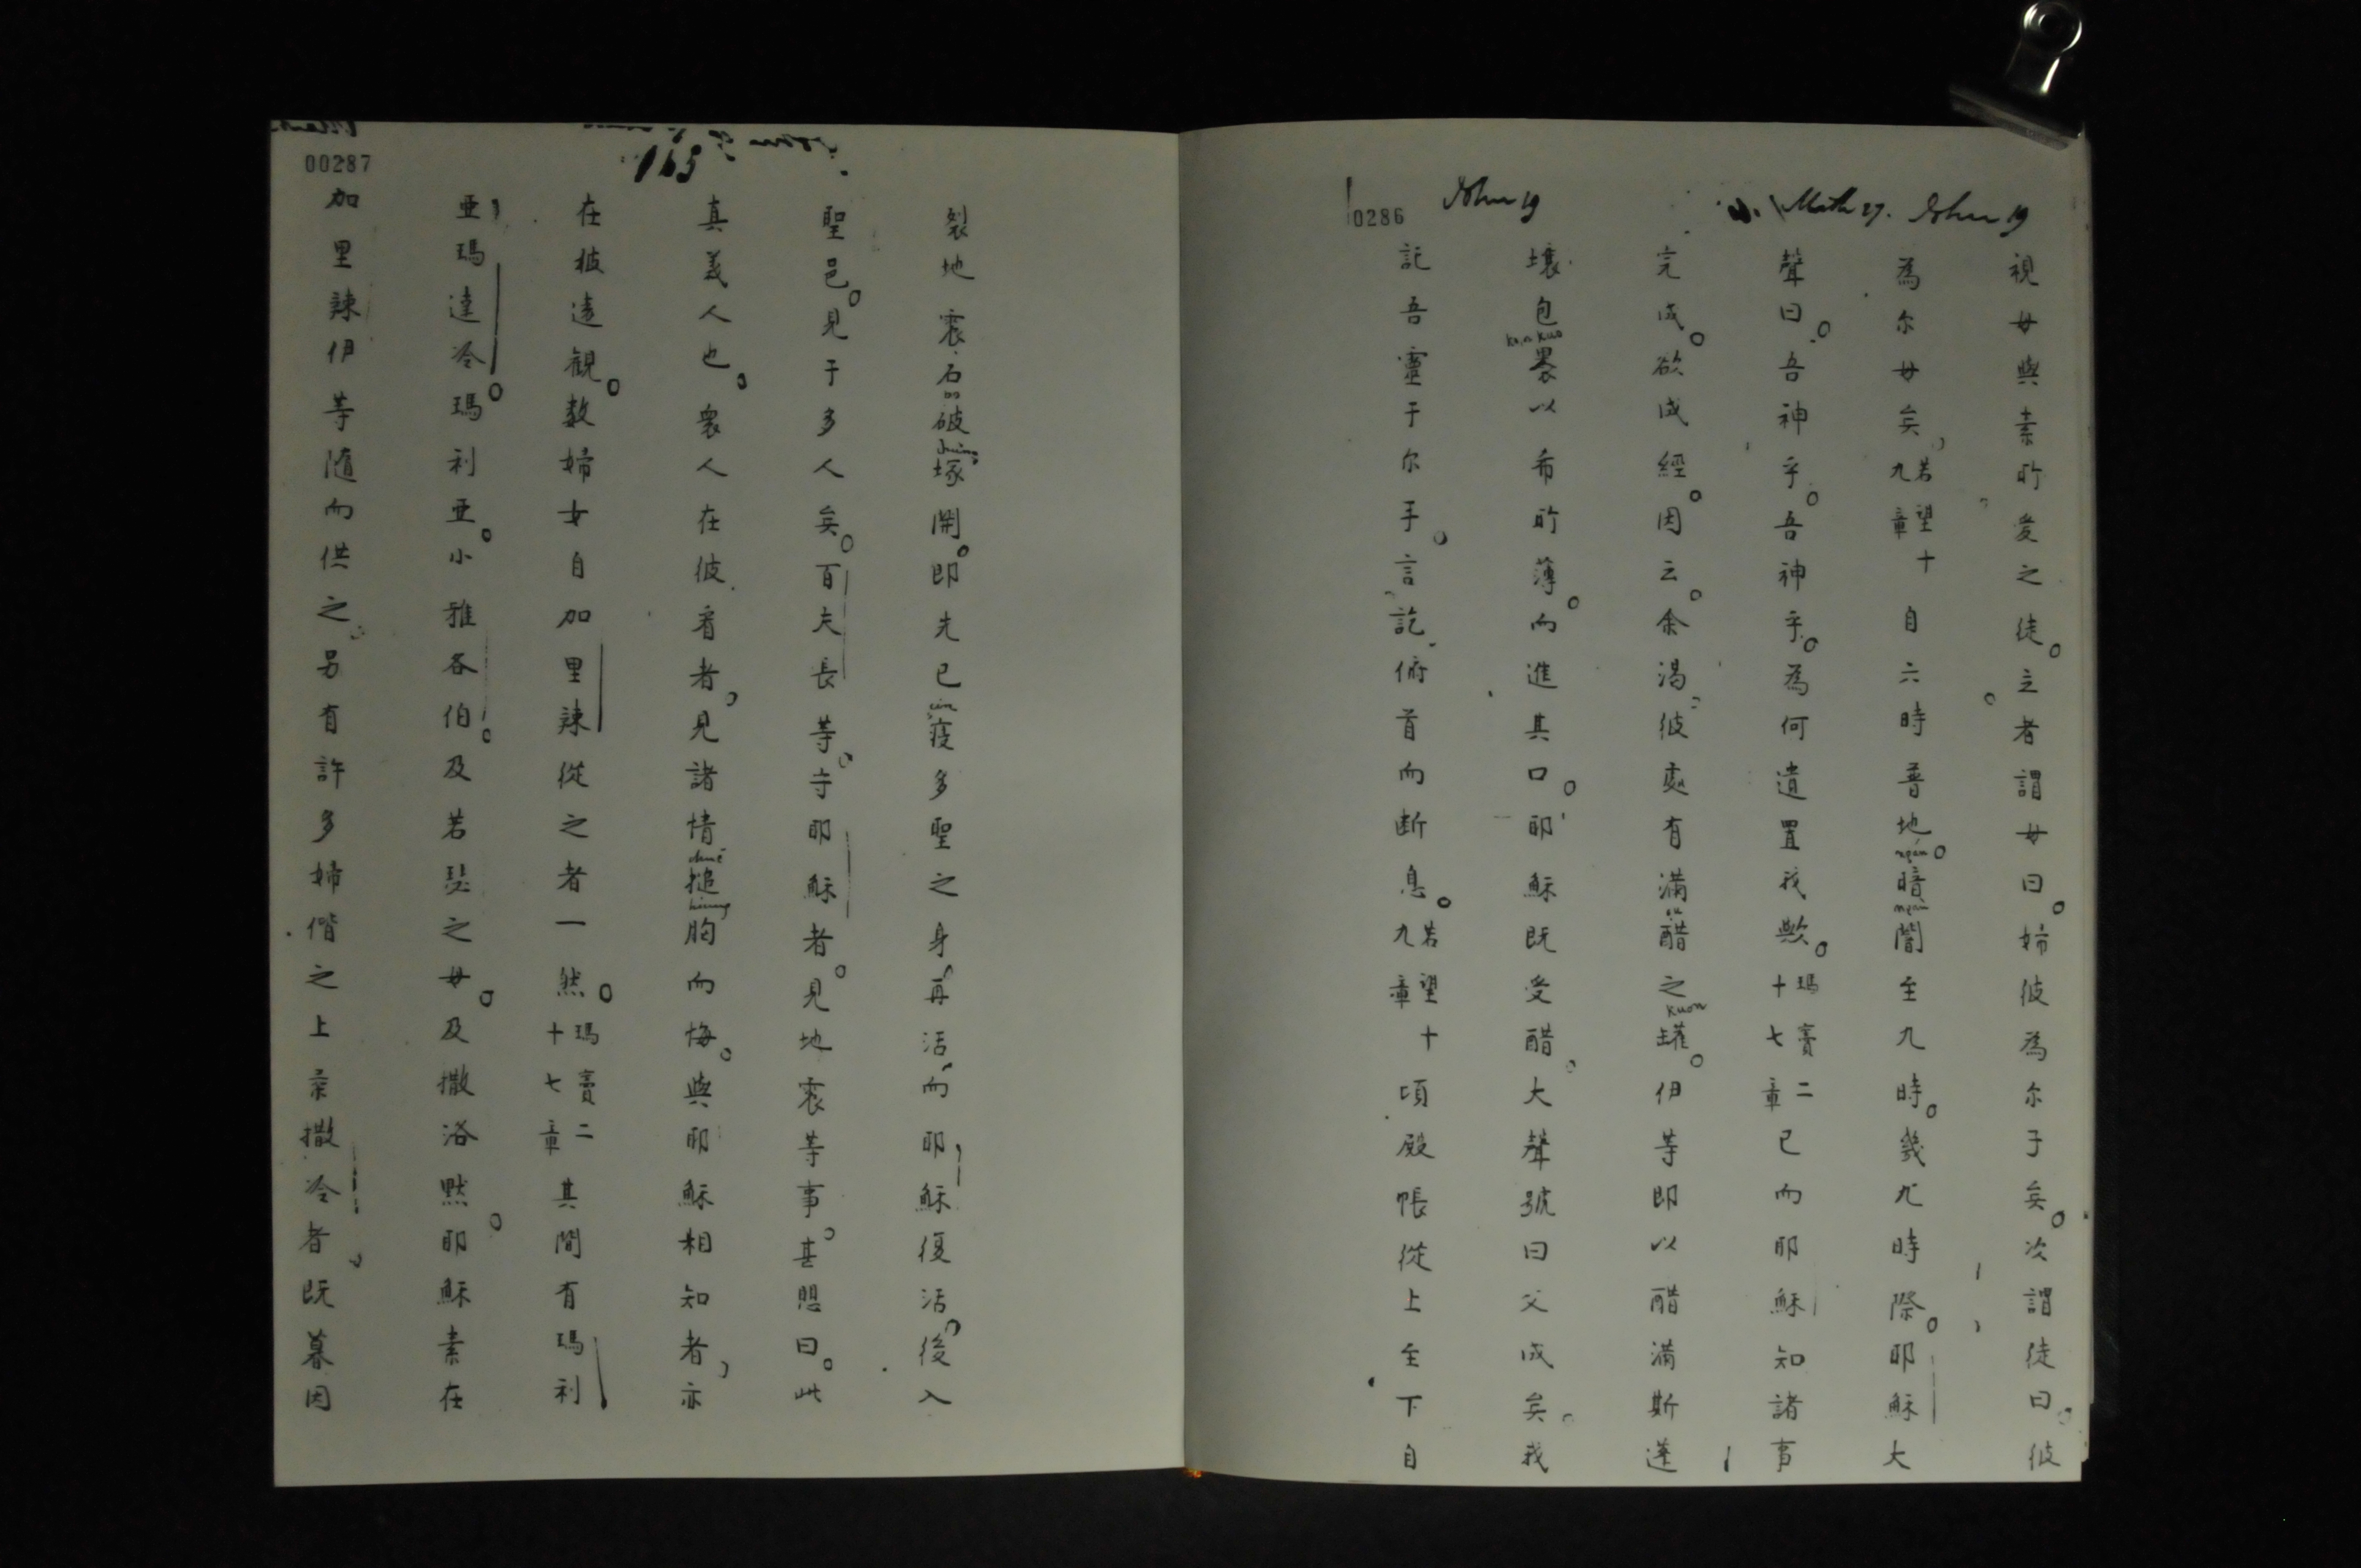 John 19
Math 27.
John 19
0286
視母與素所愛之徒。立者謂母曰。婦彼為尔子矣。次謂徒曰。彼
為尔母矣。若望十九章 自六時普地暗闇至九時。幾九時際。耶穌大
聲曰。吾神乎。吾神乎。為何遺置我歟。瑪竇二十七章 已而耶穌知諸事
完成。欲成經。因云。余渴。彼處有滿醋之罐。伊等即以醋滿斯蓬
壤包裹以希所薄。而進其口。耶穌既受醋。大聲號曰父成矣。我
託吾靈于尔手。言訖。俯首而断息。若望十九章 頃殿帳從上至下自
00287
165
裂地震石破塚開。即先已寑多聖之身再活而耶穌復活後入
聖邑。見于多人矣。百夫長等。守耶穌者。見地震等事。甚思曰。此
真義人也。衆人在彼看者，見諸情搥胸而悔。與耶穌相知者，亦
在彼遠観。数婦女自加里辣從之者一然。瑪竇二十七章 其間有瑪利
亜瑪達冷。瑪利亜。小雅各伯。及若瑟之母。及撒洛黙。耶穌素在
加里辣伊等随而供之。另有許多婦偕之上柔撒冷者。既暮因